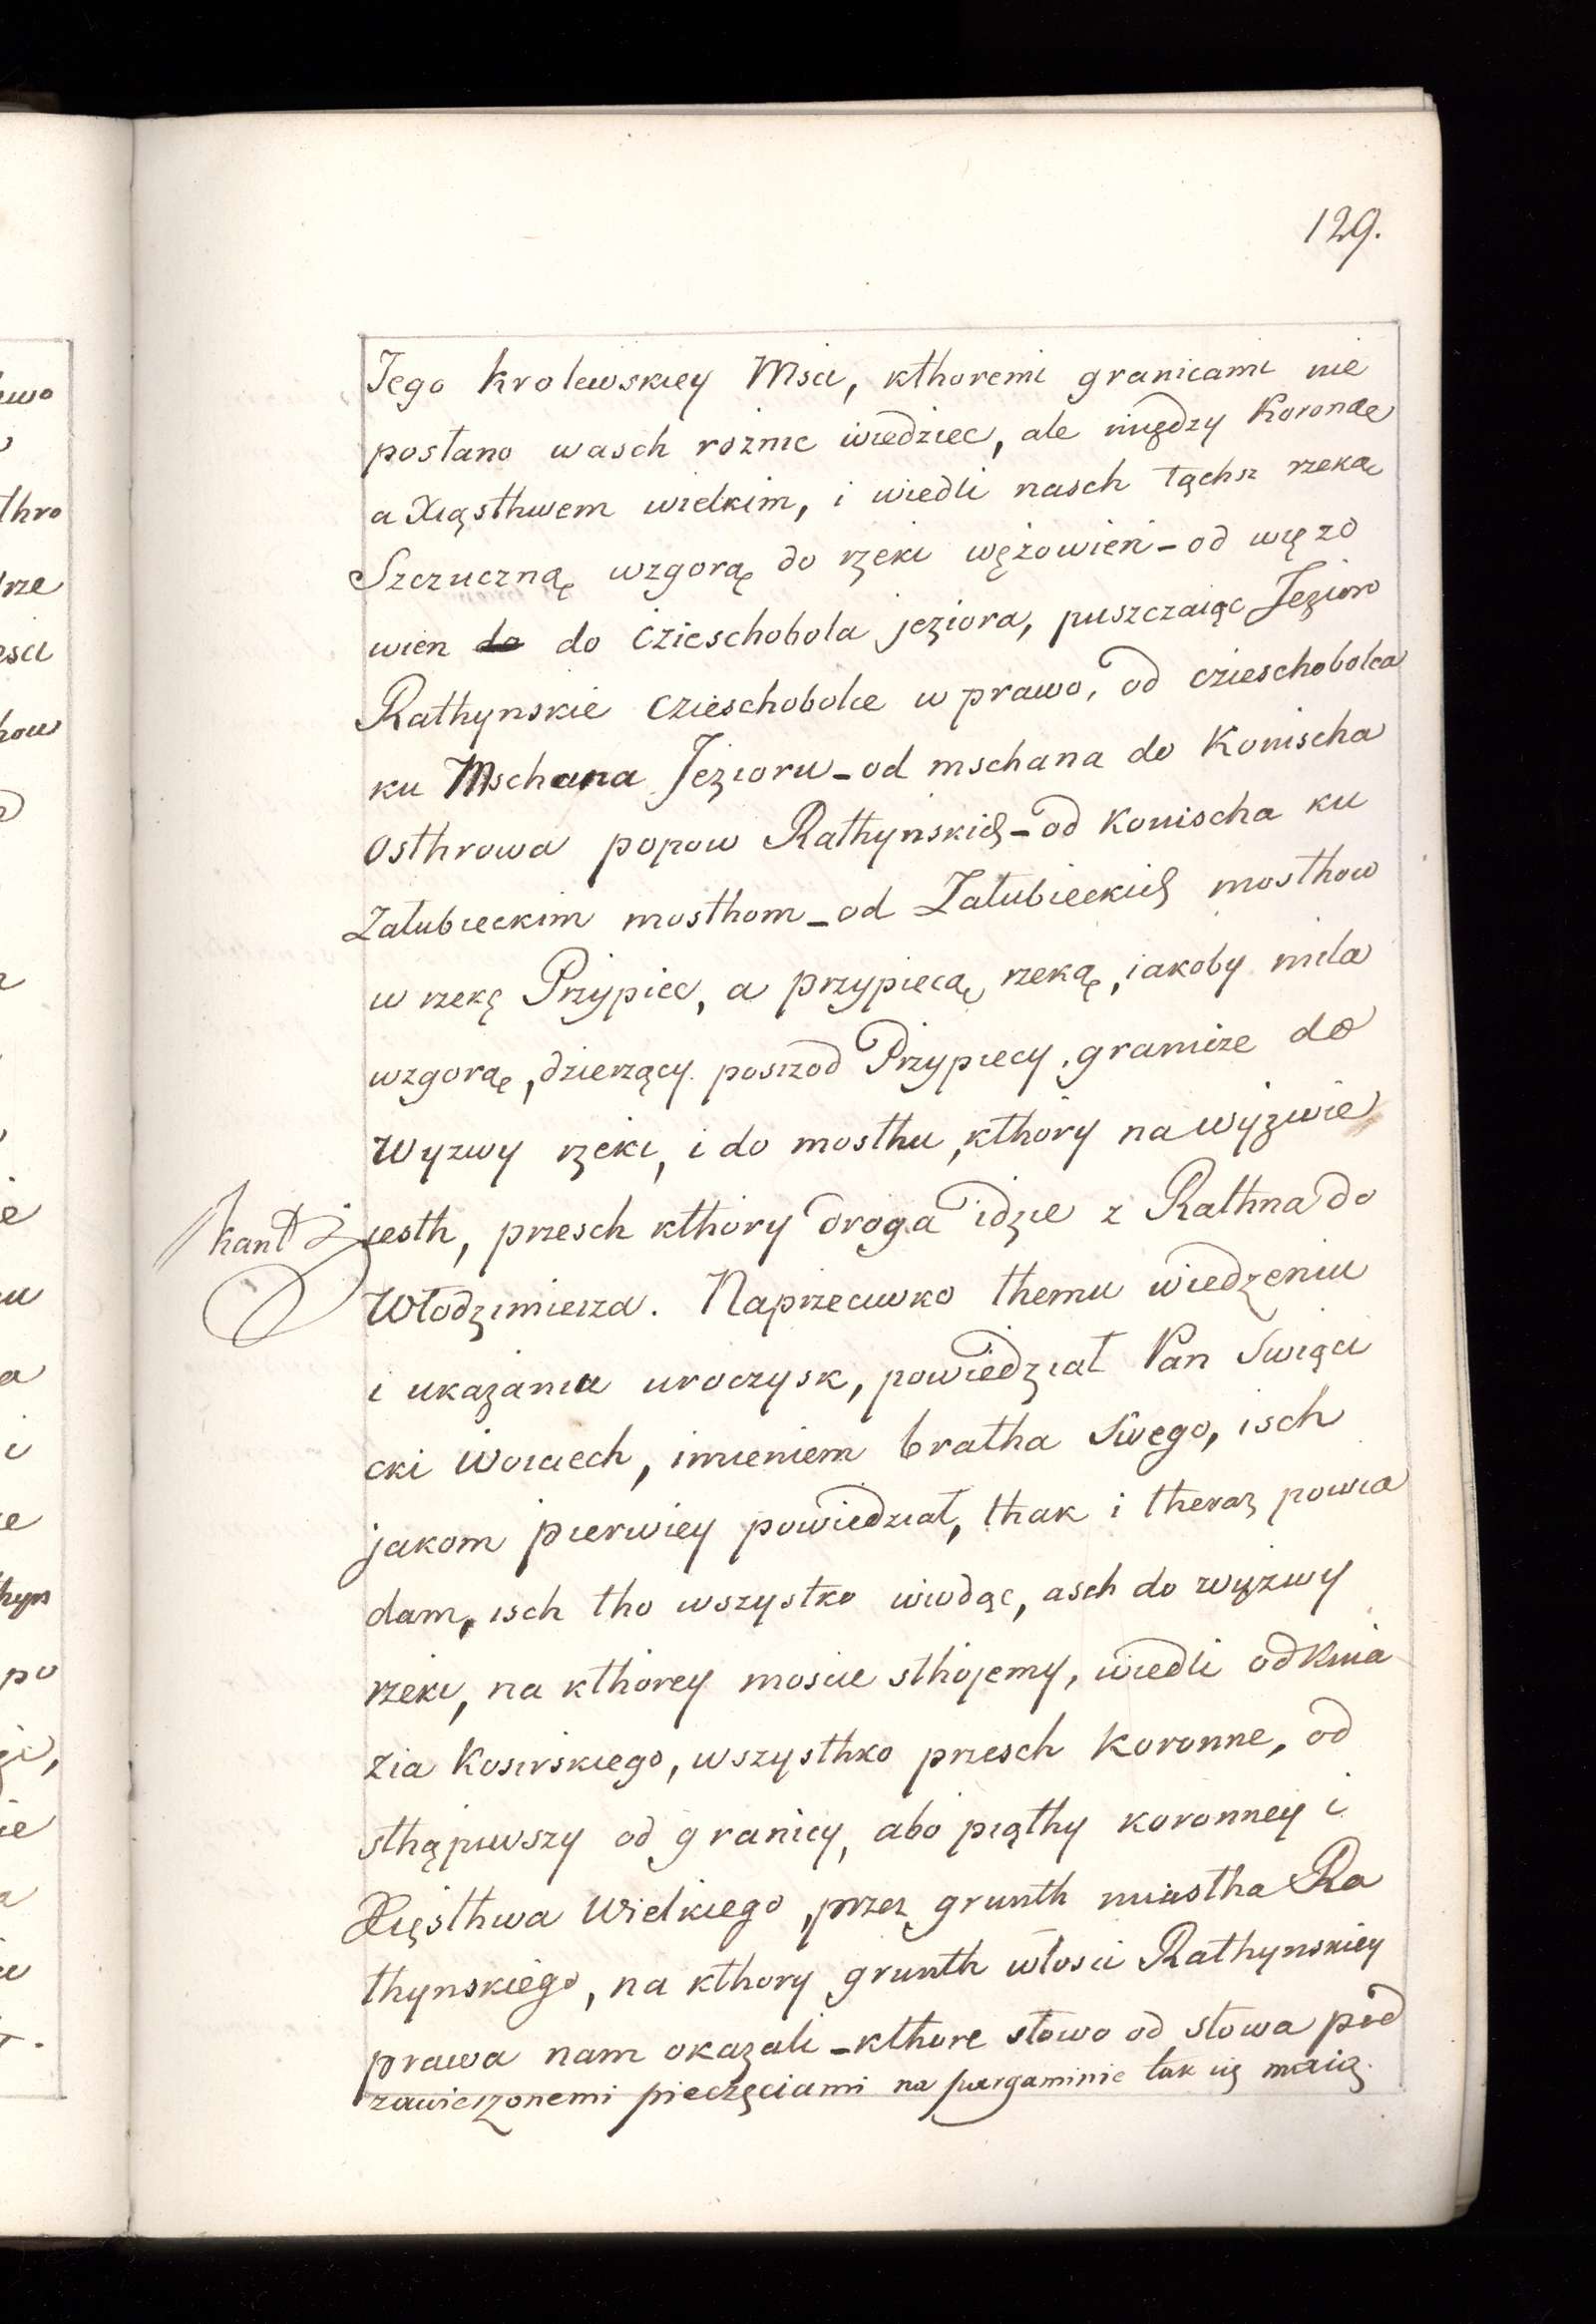 129.
Jego krolewskiey Msci, kthoremi granicami nie
posłano wasch roznic wiedziec, ale między Koroną
a Xięsthwem wielkim, i wiedli nasch tąchsz rzeką
Szczuczną wzgorą do rzeki wężowień - od wężo
wien do do Czieschobola jeziora, puszczaiąc Jezioro
Rathynskie Czieschobolce w prawo, od czieschobolca
ku Mschana Jezioru - od mschana do Konischa
Osthrowa popow Rathyńskich - od Konischa ku
Załubieckim mosthom - od Załubieckich mosthow
w rzekę Przypiec, a przypiecą rzeką, iakoby mila
wzgorą, dzierzący poszrod Przypiecy, granicze do
Wyzwy rzeki, i do mosthu, kthóry na wyzwie
iesth, przesch kthóry droga idzie z Rathna do
Włodzimierza. Naprzeciwko themu wiedzeniu
i ukazania uroczysk, powiedział Pan Swięci
cki Woiciech, imieniem bratha Swego, isch
jakom pierwiey powiedział, thak i theraz powia
dam, isch tho wszystko wiodąc, asch do wyzwy
rzeki, na kthórey moscie sthojemy, wiedli od Knia
zia Kosirskiego, wszysthko przesch koronne, od
sthąpiwszy od granicy, abo piąthy koronney i
Xięsthwa Wielkiego, przez grunth miastha Ra
thynskiego, na kthory grunth włosci Rathynskiey
prawa nam okazali - kthore słowo od słowa pod
zawieszonemi pieczęciami na pargaminie tak się maią.